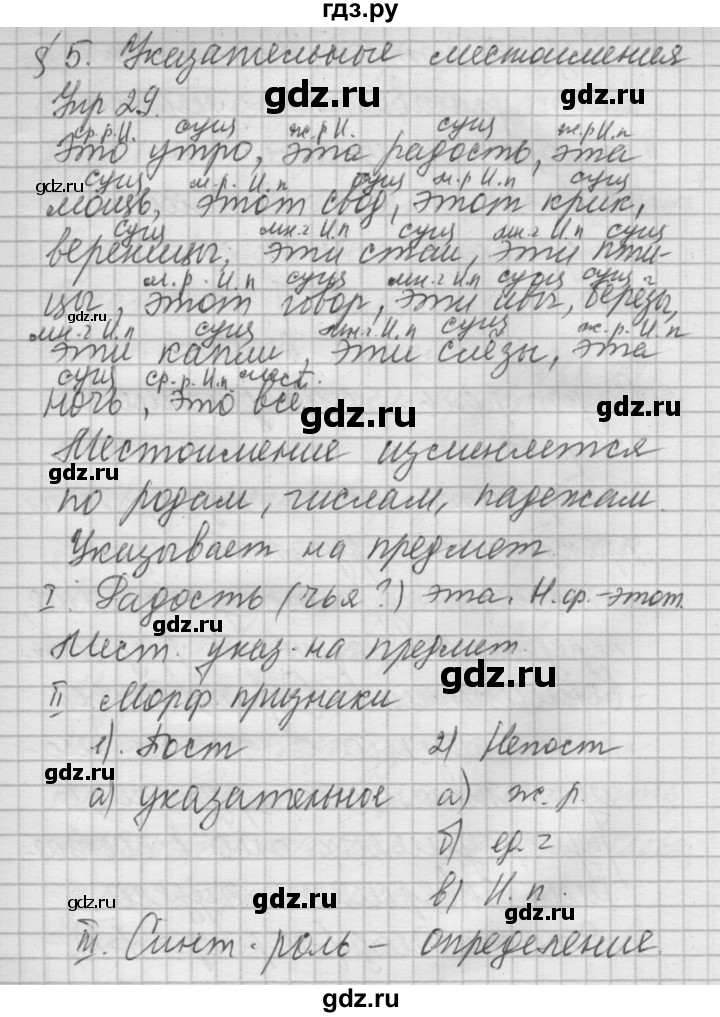 гдз.ру
§ 5. Указательные местоимения
Упр 29.
gdz.ru
gdz.ru
ср.р.И. сущ ж.р И. сущ ж.р И.п
Это утро, эта радость, эта
gdz.ru
сущ м.р. И.п сущ м.р И.п сущ
мощь, этот свод, этот крик,
сущ мн.ч И.п сущ мн.ч И.п сущ
вереницы, эти стаи, эти пти-
м.р. И.п сущ мн.ч И.п сущ сущ
цы, этот говор, эти ивы, березы,
gdz.ru
мн.ч И.п сущ мн.ч И.п сущ ж.р. И.п
эти капли, эти слезы, эта
сущ ср.р.И.п мест.
ночь, это все
gdz.ru
Местоимение изменяется
gdz.ru
по родам, числам, падежам.
Указывает на предмет.
gdz.ru
I. Радость (чья?) эта. Н.ф.-этот.
gdz.ru
Мест. указ. на предмет.
gdz.ru
II Морф признаки
1). Пост 2) Непост
gdz.ru
а) указательное а) ж.р.
б) ед. ч
в) И.п.
gdz.ru
gdz.ru
gdz.ru
III. Синт. роль – определение.
gdz.ru